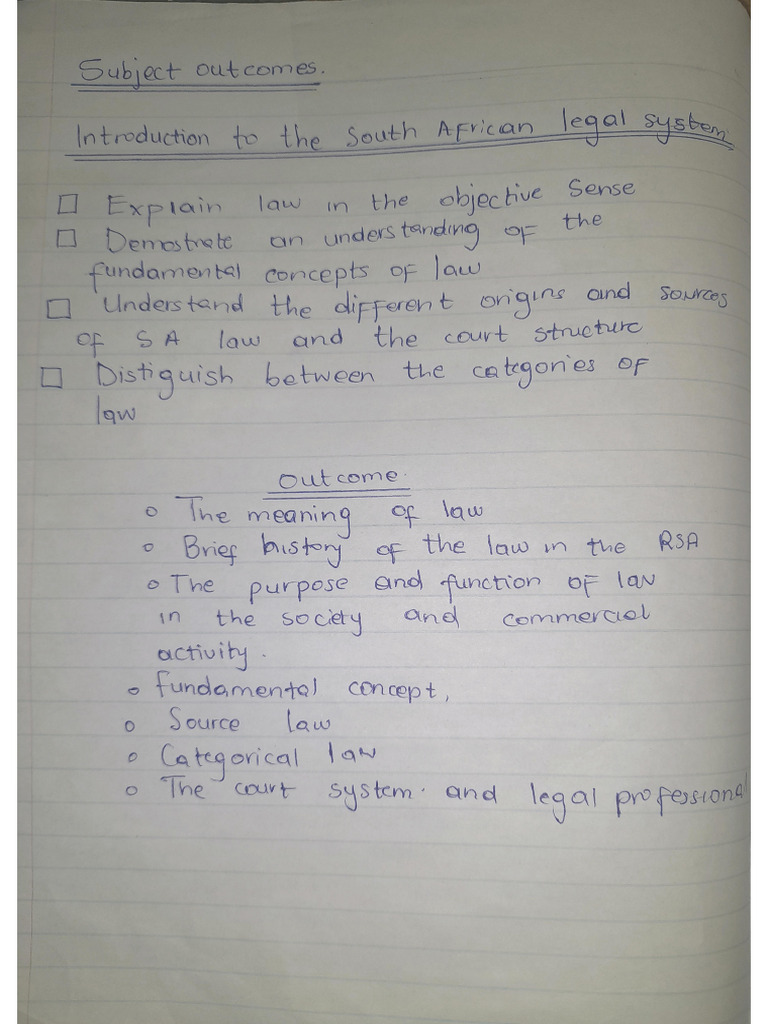 Subject outcomes.
Introduction to the South African legal system.
□ Explain law in the objective Sense
□ Demostrate an understanding of the
fundamental concepts of law
□ Understand the different origins and sources
of SA law and the court structure
□ Distiguish between the categories of
law
Outcome.
o The meaning of law
o Brief history of the law in the RSA
o The purpose and function of law
in the society and commercial
activity.
o fundamental concept,
o Source law
o Categorical law
o The court system. and legal professional